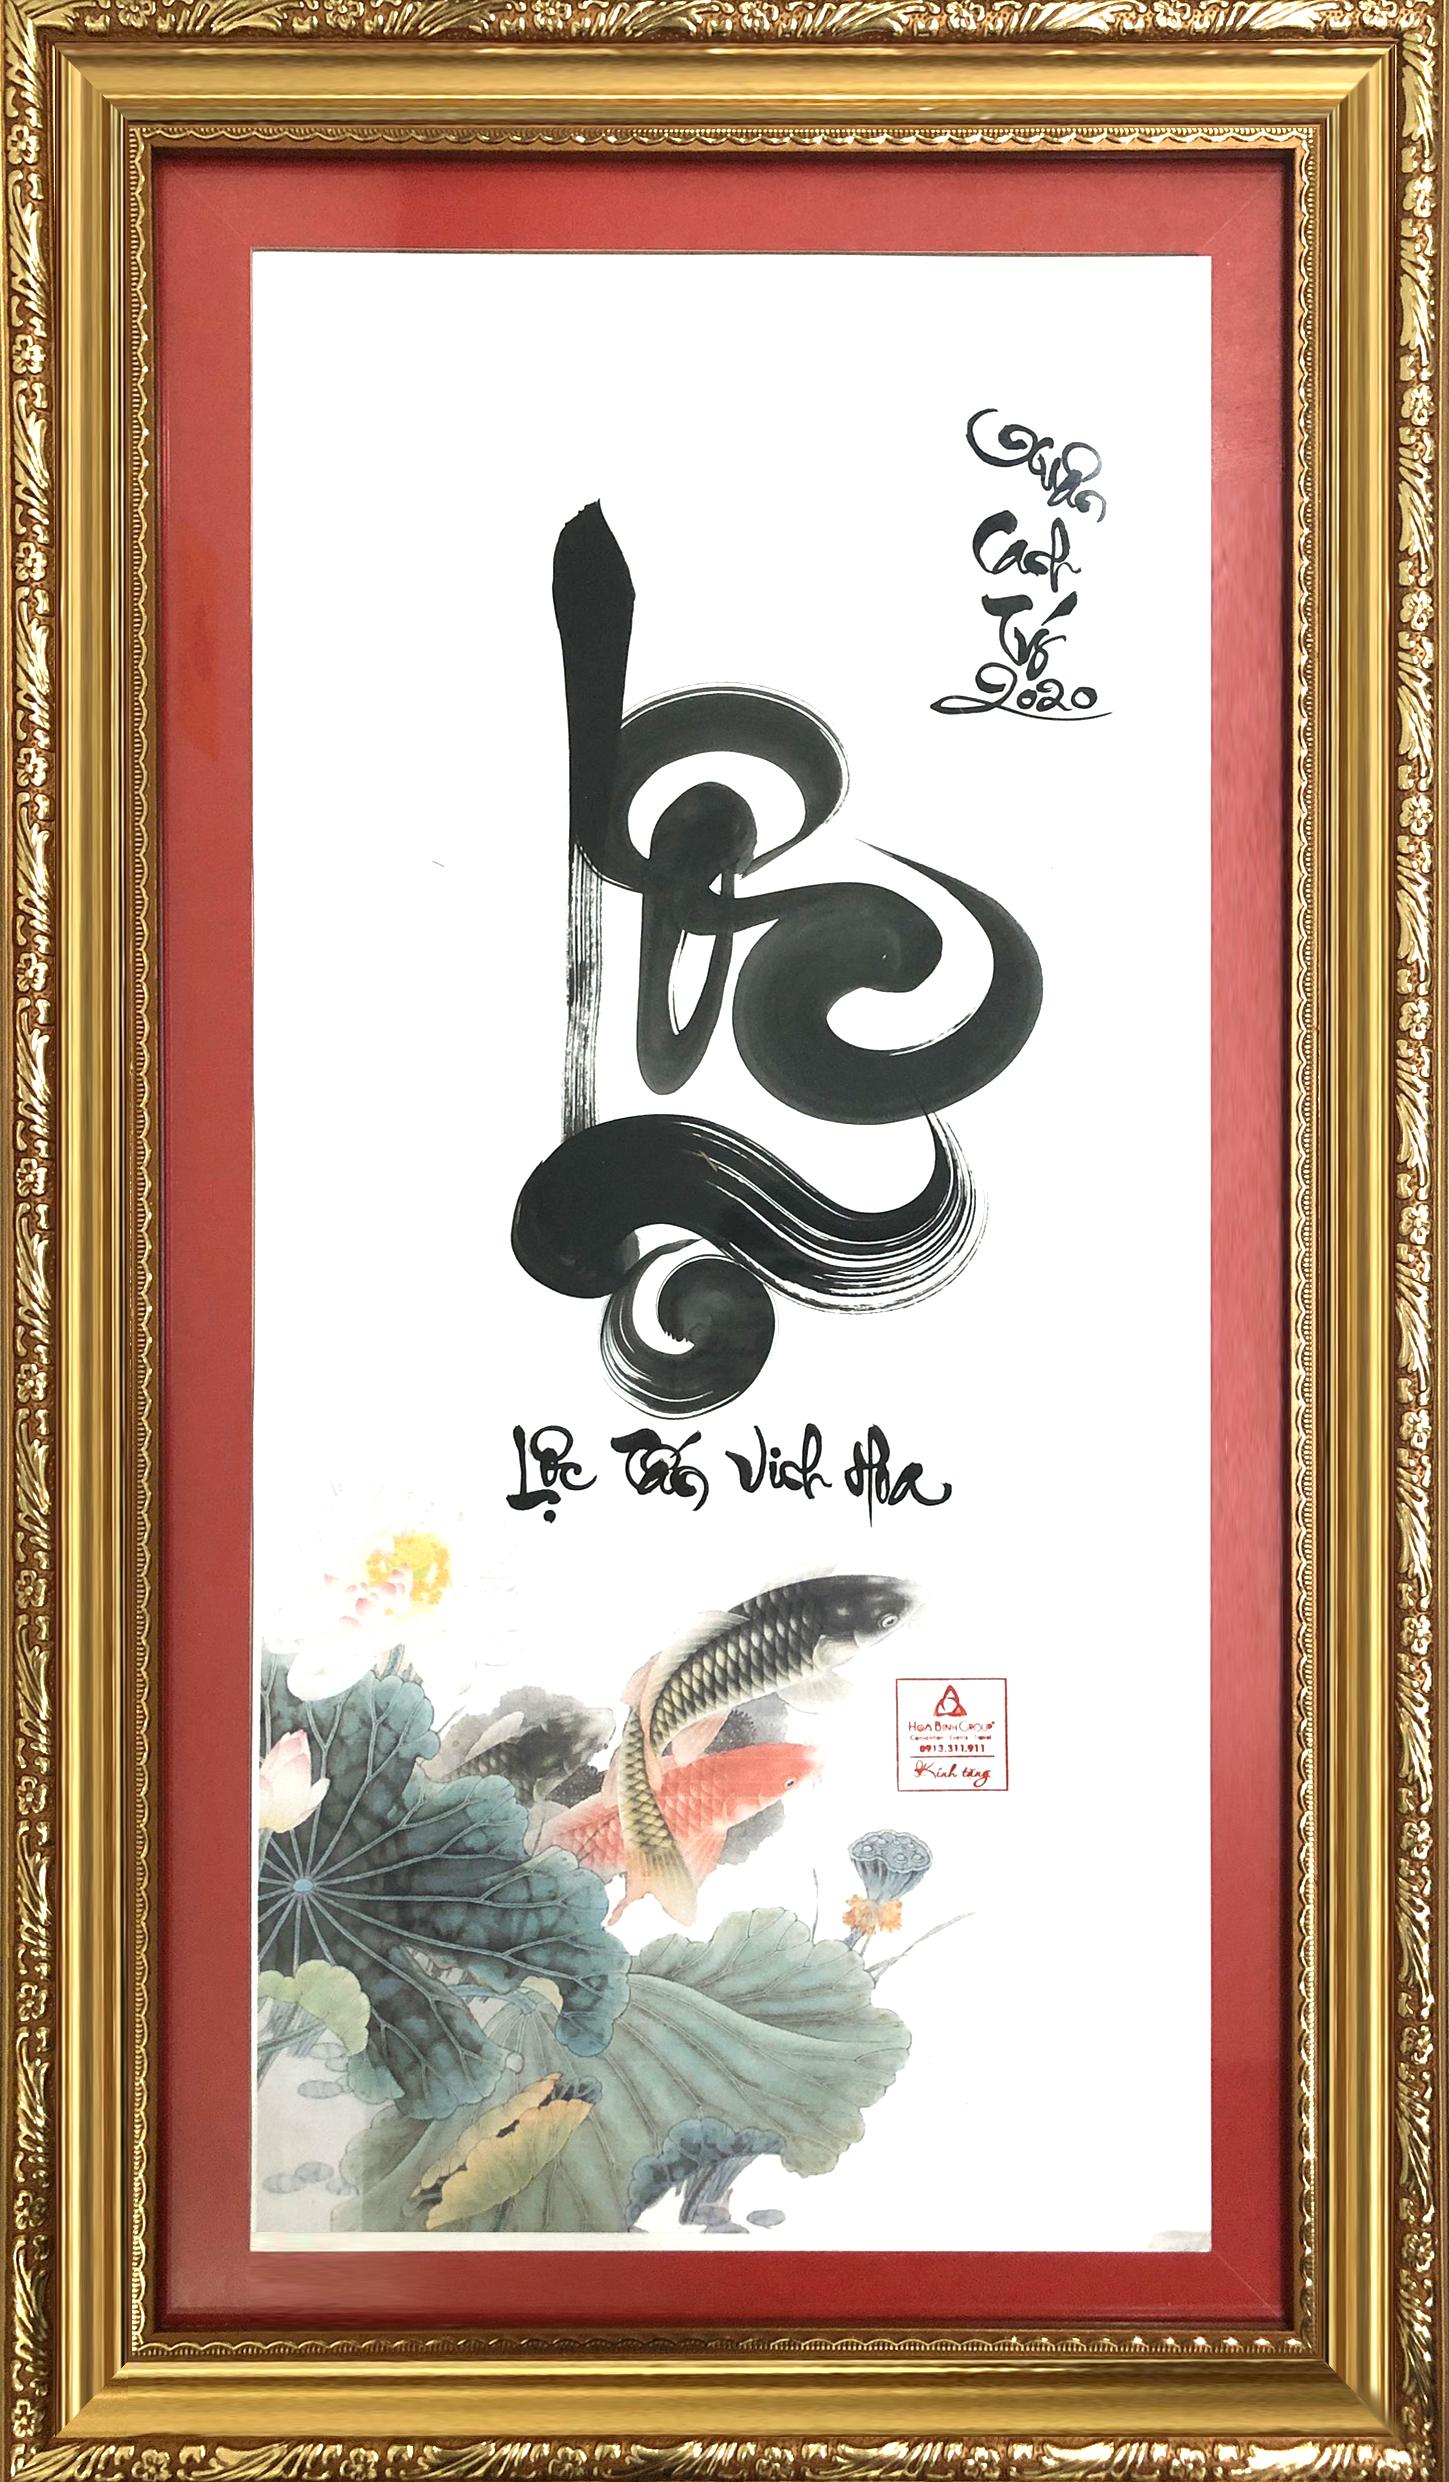 Xuân
Canh
Tý
2020
Lộc
Lộc Tấn Vinh Hoa
HOA BINH GROUP®
Convention Events Travel
0913.311.911
Kính tặng